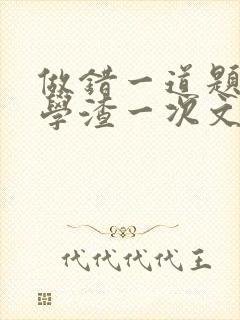 做錯一道題
學渣一次文
代代代代王